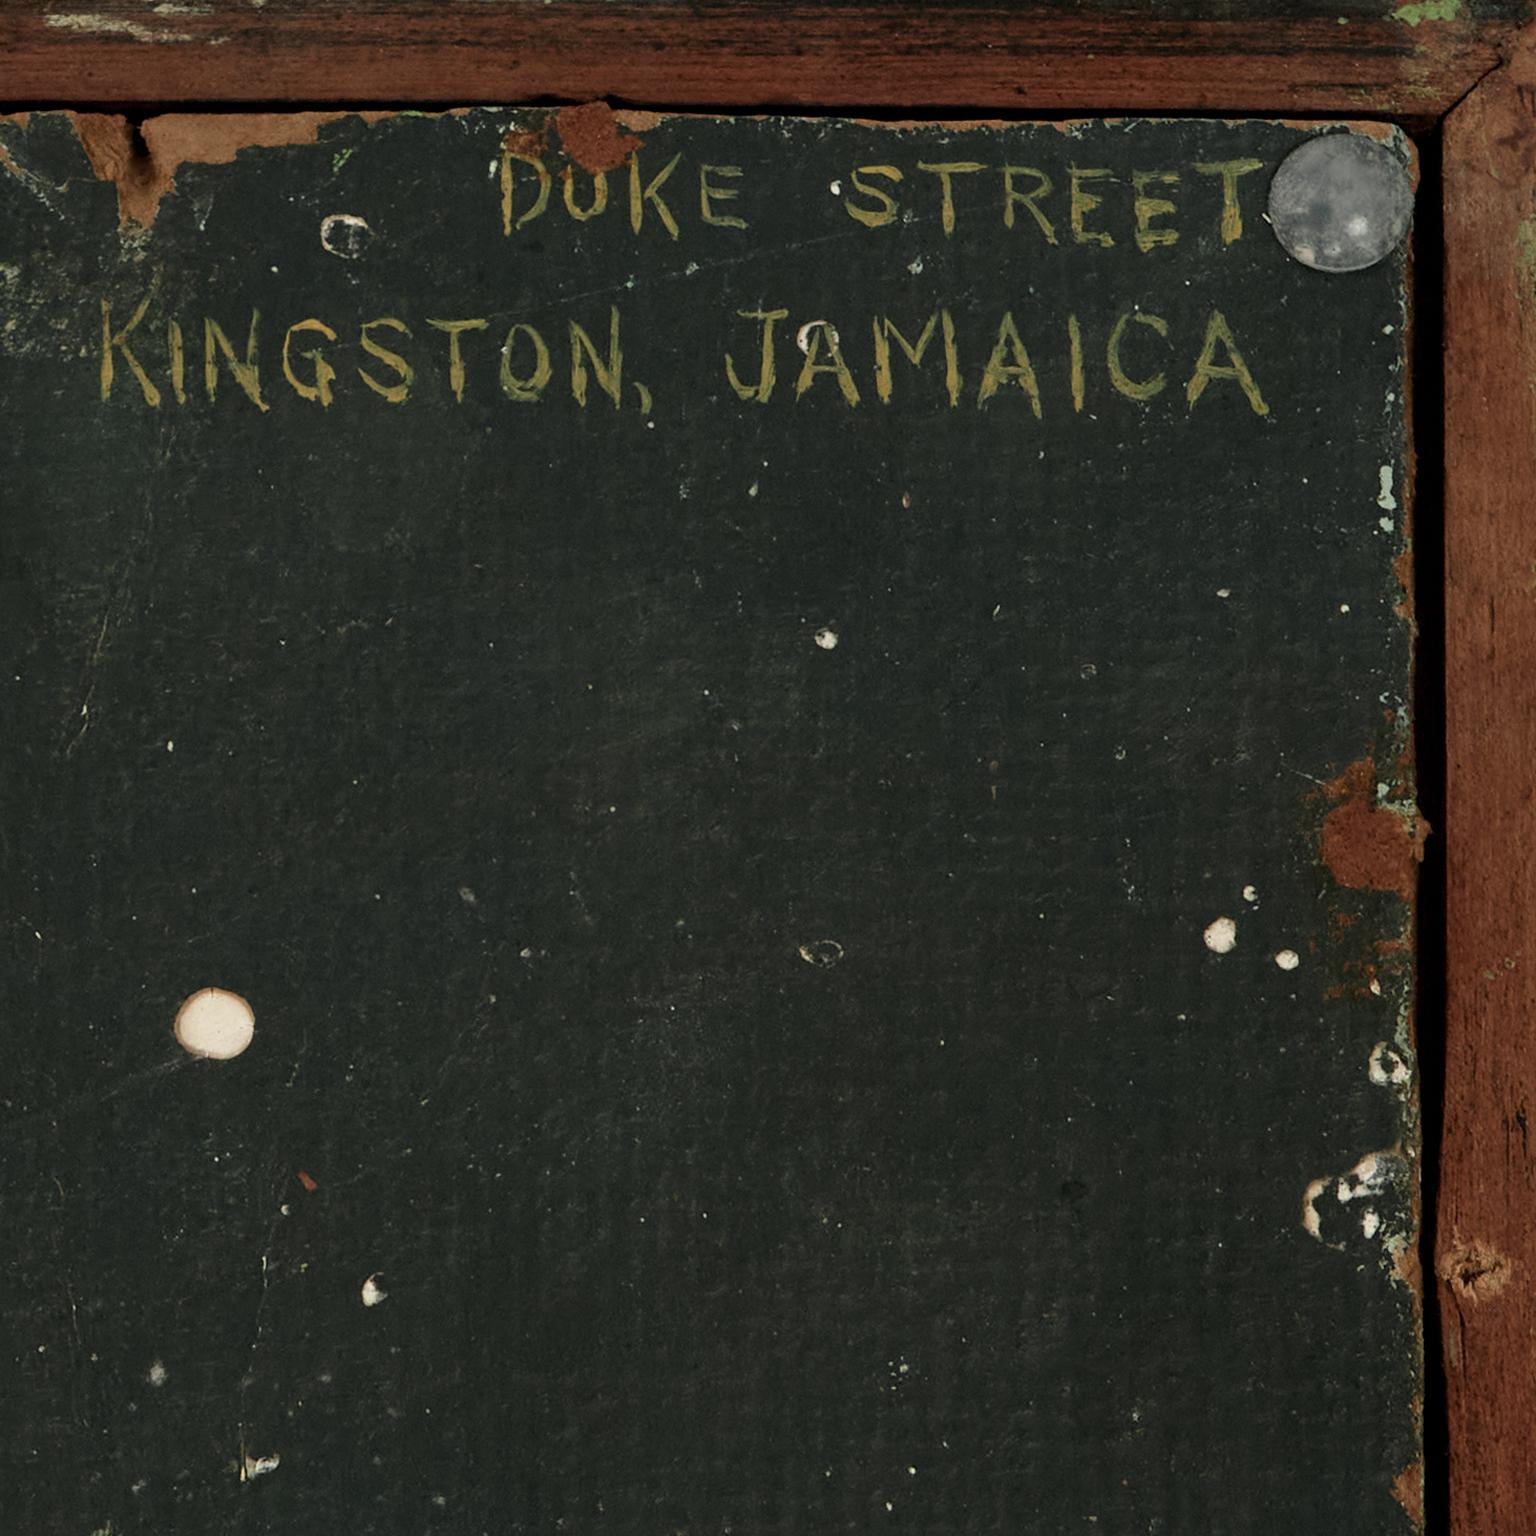 DUKE STREET
KINGSTON, JAMAICA